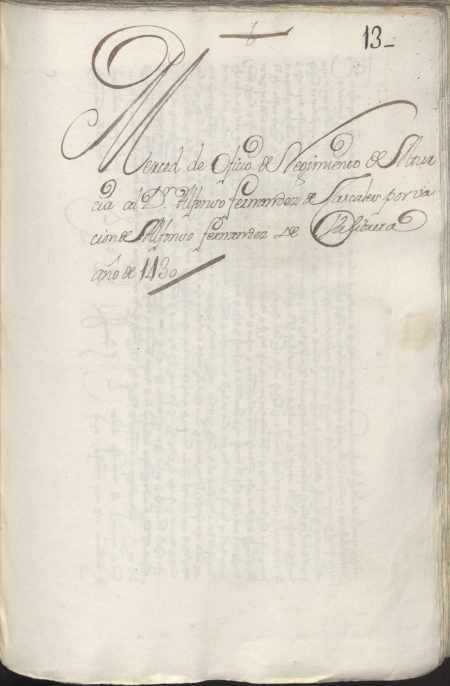 6
13_
Merced de Oficio de Regimiento de Mur
cia al D.r Alfonso fernandez de Cascales por va
cion de Alfonso fernandez de
año de 1430